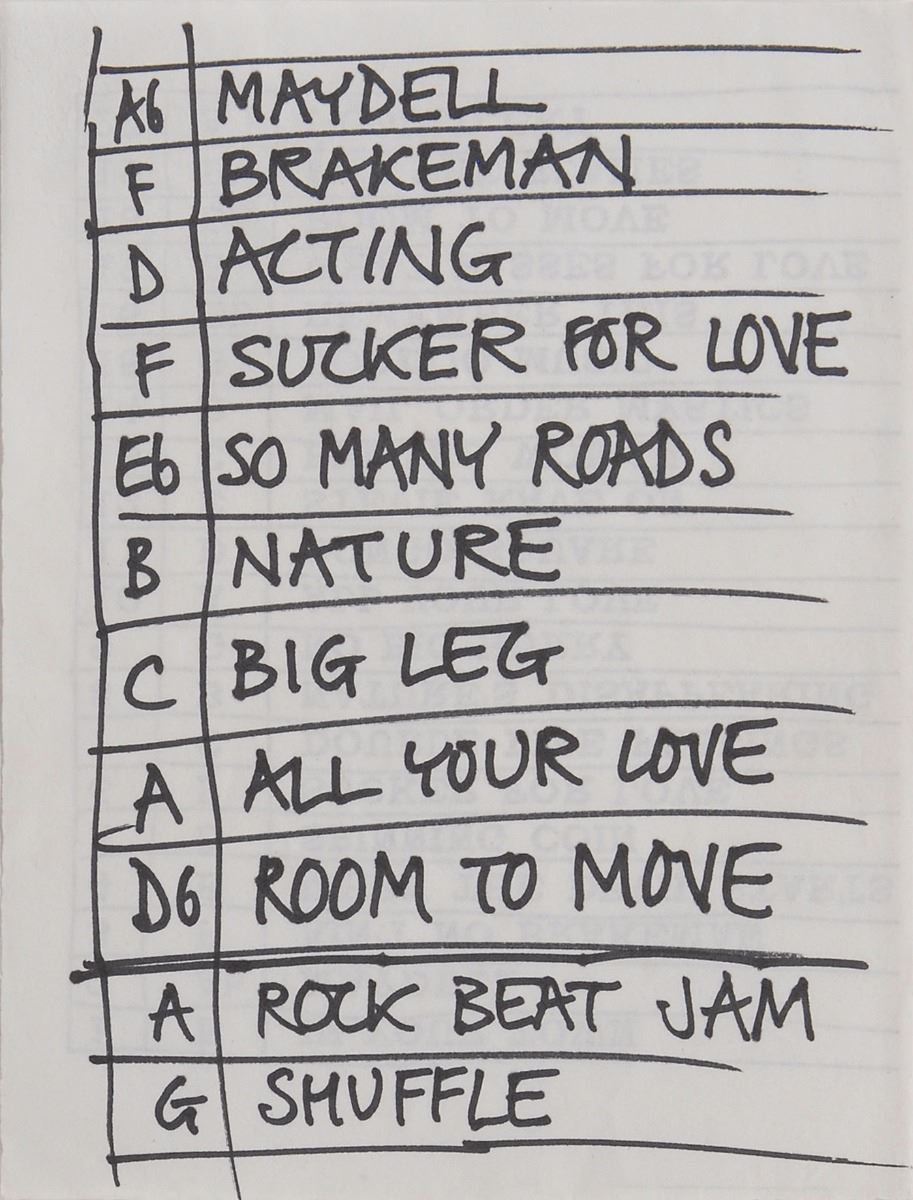 Ab MAYDELL
F BRAKEMAN
D ACTING
F SUCKER FOR LOVE
Eb SO MANY ROADS
B NATURE
C BIG LEG
A ALL YOUR LOVE
Db ROOM TO MOVE
A ROCK BEAT JAM
G SHUFFLE